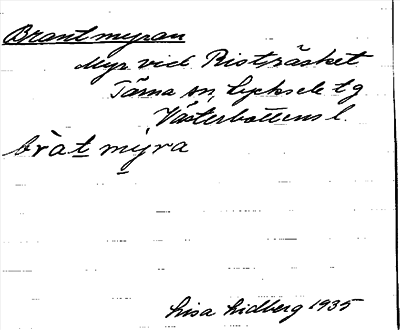 Brantmyran
Myr vid Ristträsket
Tärna sn, Lycksele tg
Västerbottens l.
bràt mýra
Lisa Lidberg 1935